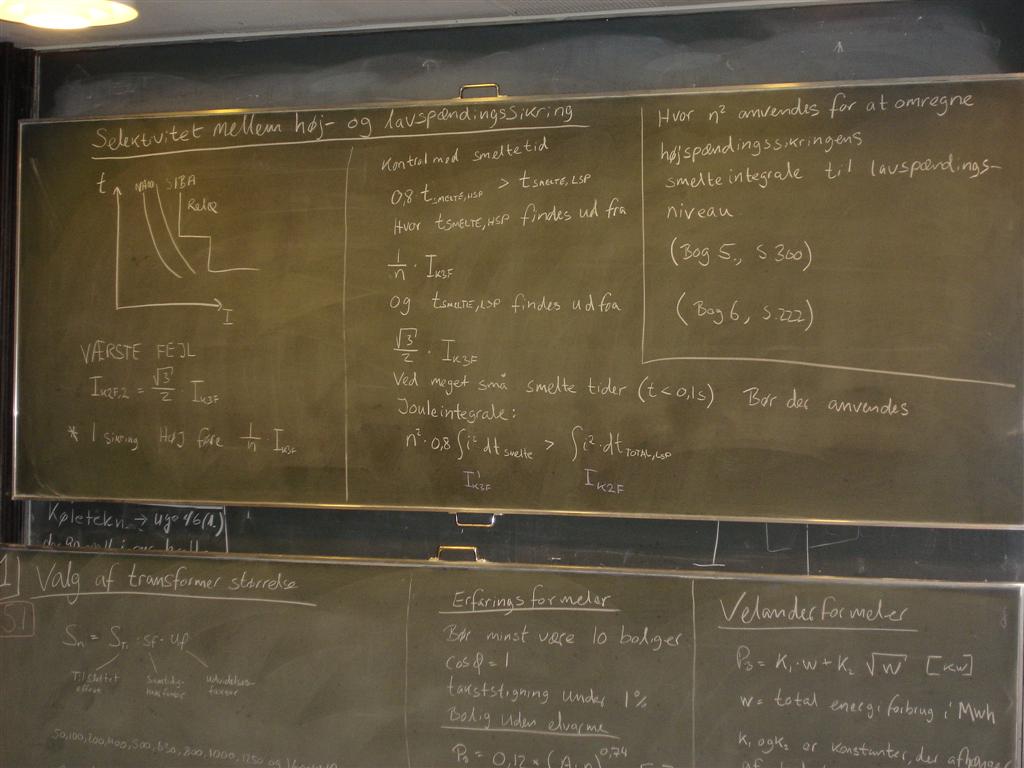 Selektivitet mellem høj- og lavspændingssikring
t
SIBA
Relæ
I
VÆRSTE FEJL
I_K2F,2 = √3/2 I_K3F
* 1 sikring HøJ føre 1/n · I_K3F
Kontrol med smeltetid
0,8 t_SMELTE,HSP > t_SMELTE,LSP
Hvor t_SMELTE,HSP findes ud fra
1/n · I_K3F
og t_SMELTE,LSP findes ud fra
√3/2 · I_K3F
Ved meget små smelte tider (t < 0,1s) Bør der anvendes
Jouleintegrale:
n² · 0,8 ∫i² dt_smelte > ∫i² · dt_TOTAL,LSP
I_K3F I_K2F
Hvor n² anvendes for at omregne
højspændingssikringens
smelteintegrale til lavspændings-
niveau.
(Bog 5., S 300)
(Bog 6, S.222)
Køletekn. → uge
1 Valg af transformer størrelse
S1
Tilsluttet
effekt
50,100,200,400,500,630,800,1000,1250 og
Erfaringsformeler
Bør minst være 10 boliger
cos φ = 1
takststigning under 1%
Bolig uden elvarme
Velanderformeler
P₃ = K₁ · w + K₂ √w [kW]
w = total energiforbrug i Mwh
K₁ og K₂ er konstanter, der afhænger